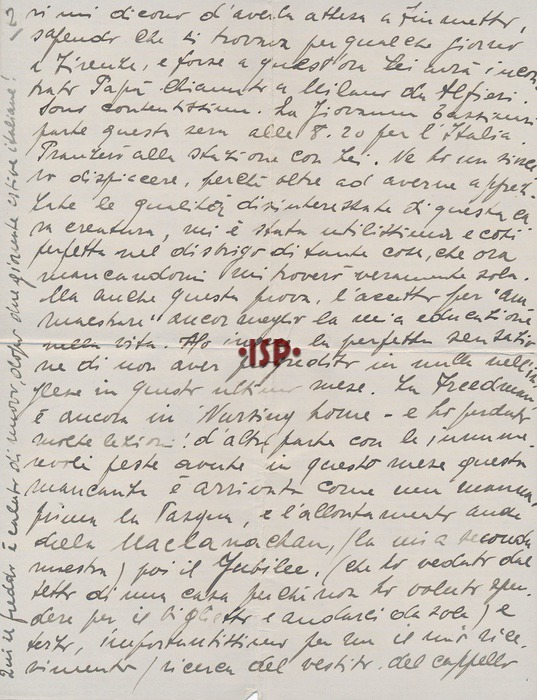 si mi dicono d'averla attesa a Finmetto,
sapendo che si trovava per qualche giorno
a Firenze, e forse a quest'ora Lei avrà incon
trato Papà chiamato a Milano da Alfieri.
Sono contentissima. La Giovanna Bastianini
parte questa sera alle 8.20 per l'Italia.
Pranzerò alla stazione con Lei. Ne ho un since
ro dispiacere, perché oltre ad averne apprez
zate le qualità disinteressate di questa ca
ra creatura, mi è stata utilissima e così
perfetta nel disbrigo di tante cose, che ora
mancandomi mi troverò veramente sola.
Ma anche questa prova, l'accetto per "am
maestrare" ancor meglio la mia educazione
nella vita. Ho la perfetta sensazio
ne di non aver progredito in nulla nell'in
glese in questo ultimo mese. La Freedman
è ancora in Nursing home - e ho perduto
molte lezioni! d'altra parte con le innume
revoli feste avute in questo mese questa
mancanza è arrivata come una manna,
prima la Pasqua, e l'allontamento anche
della Maclanachan, (la mia seconda
maestra) poi il Jubilee, (che ho veduto dal
tetto di una casa perché non ho voluto spen
dere per il biglietto e andarci da sola) e
terzo, importantissimo per me il mio rice
vimento (ricerca del vestito. del cappello
Qui il freddo è calato di nuovo, dopo due giornate estive italiane!
·ISP·